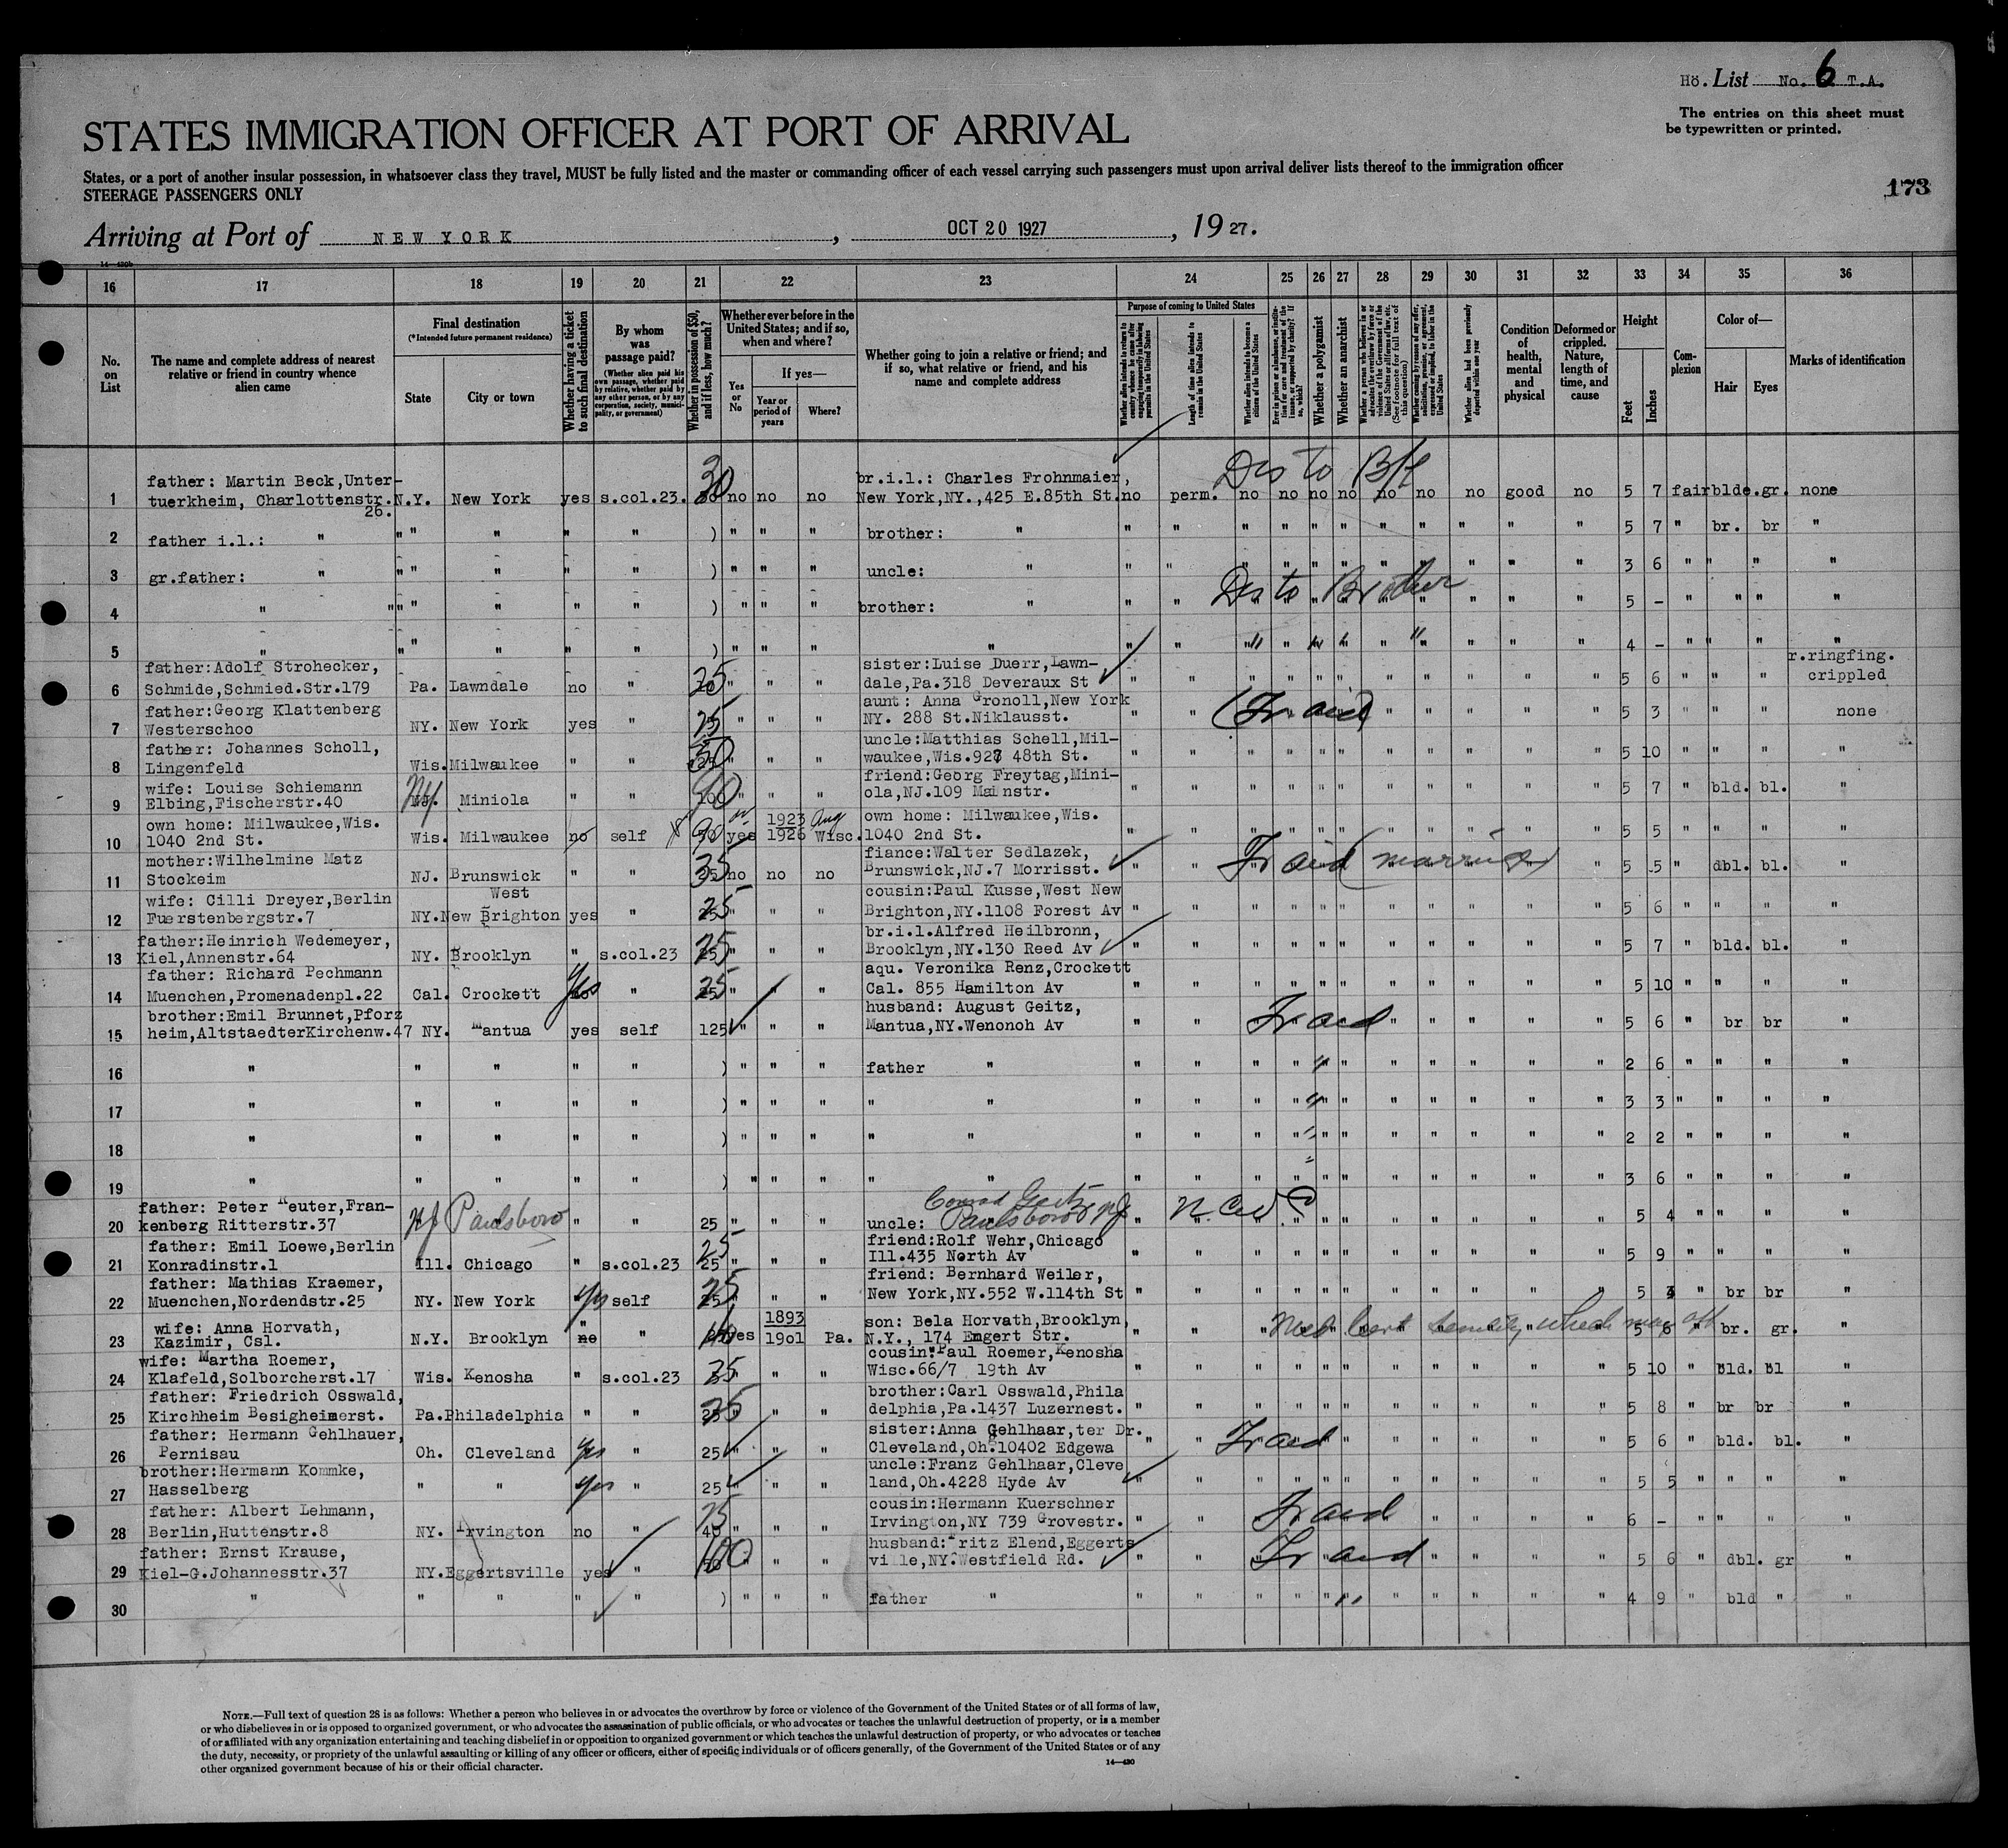 Hö. List No. 6 T.A.
The entries on this sheet must
be typewritten or printed.
STATES IMMIGRATION OFFICER AT PORT OF ARRIVAL
States, or a port of another insular possession, in whatsoever class they travel, MUST be fully listed and the master or commanding officer of each vessel carrying such passengers must upon arrival deliver lists thereof to the immigration officer
STEERAGE PASSENGERS ONLY
173
Arriving at Port of NEW YORK, OCT 20 1927, 1927.
16 17 18 19 20 21 22 23 24 25 26 27 28 29 30 31 32 33 34 35 36
No. on List
The name and complete address of nearest relative or friend in country whence alien came
Final destination
(*Intended future permanent residence)
State
City or town
Whether having a ticket to such final destination
By whom was passage paid?
(Whether alien paid his own passage, whether paid by relative, whether paid by any other person, or by any corporation, society, municipality, or government)
Whether in possession of $50, and if less, how much?
Whether ever before in the United States; and if so, when and where?
Yes or No
If yes—
Year or period of years
Where?
Whether going to join a relative or friend; and if so, what relative or friend, and his name and complete address
Purpose of coming to United States
Whether alien intends to return to country whence he came after engaging temporarily in laboring pursuits in the United States
Length of time alien intends to remain in the United States
Whether alien intends to become a citizen of the United States
Whether a polygamist
Whether an anarchist
Whether alien had been previously deported within one year
Condition of health, mental and physical
Deformed or crippled. Nature, length of time, and cause
Height
Feet
Inches
Complexion
Color of—
Hair
Eyes
Marks of identification
Dis to B/L
father: Martin Beck,Unter- 30 br.i.l.: Charles Frohnmaier,
1 tuerkheim, Charlottenstr. N.Y. New York yes s.col.23. no no no New York,NY.,425 E.85th St. no perm. no no no no no no no good no 5 7 fair blde. gr. none
26.
2 father i.l.: " " " " " " ) " " " brother: " " " " " " " " " " " " 5 7 " br. br "
3 gr.father: " " " " " " ) " " " uncle: " " " " " " " " " " " " 3 6 " " " "
Dis to Brother
4 " " " " " " " ) " " " brother: " " " " " " " " " " " " 5 - " " " "
5 " " " " " ) " " " " " " " " " " " " " " " 4 - " " " "
father:Adolf Strohecker, sister:Luise Duerr,Lawn- r.ringfing.
6 Schmide,Schmied.Str.179 Pa. Lawndale no " 25 " " " dale,Pa.318 Deveraux St " " " " " " " " " " " 5 6 " " " crippled
father:Georg Klattenberg aunt: Anna Gronoll,New York
7 Westerschoo NY. New York yes " 25 " " " NY. 288 St.Niklausst. " " (Tr aid) " " " " " 5 3 " " " none
father: Johannes Scholl, uncle:Matthias Schell,Mil-
8 Lingenfeld Wis. Milwaukee " " 50 " " " waukee,Wis.927 48th St. " " " " " " " " " " " 5 10 " " " "
wife: Louise Schiemann friend:Georg Freytag,Mini-
9 Elbing,Fischerstr.40 NY. Miniola " " 90 " " " ola,NJ.109 Mainstr. " " " " " " " " " " " 5 7 " bld. bl. "
own home: Milwaukee,Wis. 1923 Aug own home: Milwaukee,Wis.
10 1040 2nd St. Wis. Milwaukee no self 90 yes 1926 Wisc. 1040 2nd St. " " " " " " " " " " " 5 5 " " " "
mother:Wilhelmine Matz fiance:Walter Sedlazek,
11 Stockeim NJ. Brunswick " " 35 no no no Brunswick,NJ.7 Morrisst. " " Tr aid (marriage) " 5 5 " dbl. bl. "
wife: Cilli Dreyer,Berlin West cousin:Paul Kusse,West New
12 Fuerstenbergstr.7 NY. New Brighton yes " 25 " " " Brighton,NY.1108 Forest Av " " " " " " " " " " " 5 6 " " " "
father:Heinrich Wedemeyer, br.i.l.Alfred Heilbronn,
13 Kiel,Annenstr.64 NY. Brooklyn " s.col.23 25 " " " Brooklyn,NY.130 Reed Av " " " " " " " " " " " 5 7 " bld. bl. "
father: Richard Pechmann aqu. Veronika Renz,Crockett
14 Muenchen,Promenadenpl.22 Cal. Crockett Yes " 25 " " " Cal. 855 Hamilton Av " " " " " " " " " " " 5 10 " " " "
brother:Emil Brunnet,Pforz husband: August Geitz,
15 heim,AltstaedterKirchenw.47 NY. Mantua yes self 125 " " " Mantua,NY.Wenonoh Av " " Tr aid " " " " " 5 6 " br br "
16 " " " " " ) " " " father " " " " " " " " " " " " 2 6 " " " "
17 " " " " " ) " " " " " " " " " " " " " " " " " 3 3 " " " "
18 " " " " " ) " " " " " " " " " " " " " " " " " 2 2 " " " "
19 " " " " " ) " " " " " " " " " " " " " " " " " 3 6 " " " "
father: Peter Reuter,Fran- Conrad Geitz
20 kenberg Ritterstr.37 NJ Paulsboro " " 25 " " " uncle: Paulsboro NJ " " " " " " " " " " " 5 4 " " " "
father: Emil Loewe,Berlin 25 friend:Rolf Wehr,Chicago
21 Konradinstr.1 Ill. Chicago " s.col.23 25 " " " Ill.435 North Av " " " " " " " " " " " 5 9 " " " "
father: Mathias Kraemer, friend: Bernhard Weiler,
22 Muenchen,Nordendstr.25 NY. New York yes self 25 " " " New York,NY.552 W.114th St " " " " " " " " " " " 5 " br br "
wife: Anna Horvath, " 1893 son: Bela Horvath,Brooklyn,
23 Kazimir, Csl. N.Y. Brooklyn no " yes 1901 Pa. N.Y., 174 Engert Str. " " Med cert senility which may aff 5 6 " br. gr. "
wife: Martha Roemer, cousin:Paul Roemer,Kenosha
24 Klafeld,Solborcherst.17 Wis. Kenosha " s.col.23 25 " " " Wisc.66/7 19th Av " " " " " " " " " " " 5 10 " bld. bl "
father: Friedrich Osswald, brother:Carl Osswald,Phila
25 Kirchheim Besigheimerst. Pa. Philadelphia " " 25 " " " delphia,Pa.1437 Luzernest. " " " " " " " " " " " 5 8 " br br "
father: Hermann Gehlhauer, sister:Anna Gehlhaar,ter Dr.
26 Pernisau Oh. Cleveland yes " 25 " " " Cleveland,Oh.10402 Edgewa " " Tr aid " " " " " " 5 6 " bld. bl. "
brother:Hermann Kommke, uncle:Franz Gehlhaar,Cleve
27 Hasselberg " " yes " 25 " " " land,Oh.4228 Hyde Av " " " " " " " " " " " 5 5 " " " "
father: Albert Lehmann, 75 cousin:Hermann Kuerschner
28 Berlin,Huttenstr.8 NY. Irvington no " 40 " " " Irvington,NY 739 Grovestr. " " Tr aid " " " " " 6 - " " " "
father: Ernst Krause, husband:Fritz Elend,Eggerts
29 Kiel-G.Johannesstr.37 NY. Eggertsville yes " 100 " " " ville,NY.Westfield Rd. " " Tr aid " " " " 5 6 " dbl. gr "
30 " " " " " ) " " " father " " " " " " " " " " " " 4 9 " bld " "
NOTE.—Full text of question 28 is as follows: Whether a person who believes in or advocates the overthrow by force or violence of the Government of the United States or of all forms of law,
or who disbelieves in or is opposed to organized government, or who advocates the assassination of public officials, or who advocates or teaches the unlawful destruction of property, or is a member
of or affiliated with any organization entertaining and teaching disbelief in or opposition to organized government or which teaches the unlawful destruction of property, or who advocates or teaches
the duty, necessity, or propriety of the unlawful assaulting or killing of any officer or officers, either of specific individuals or of officers generally, of the Government of the United States or of any
other organized government because of his or their official character.
14—430